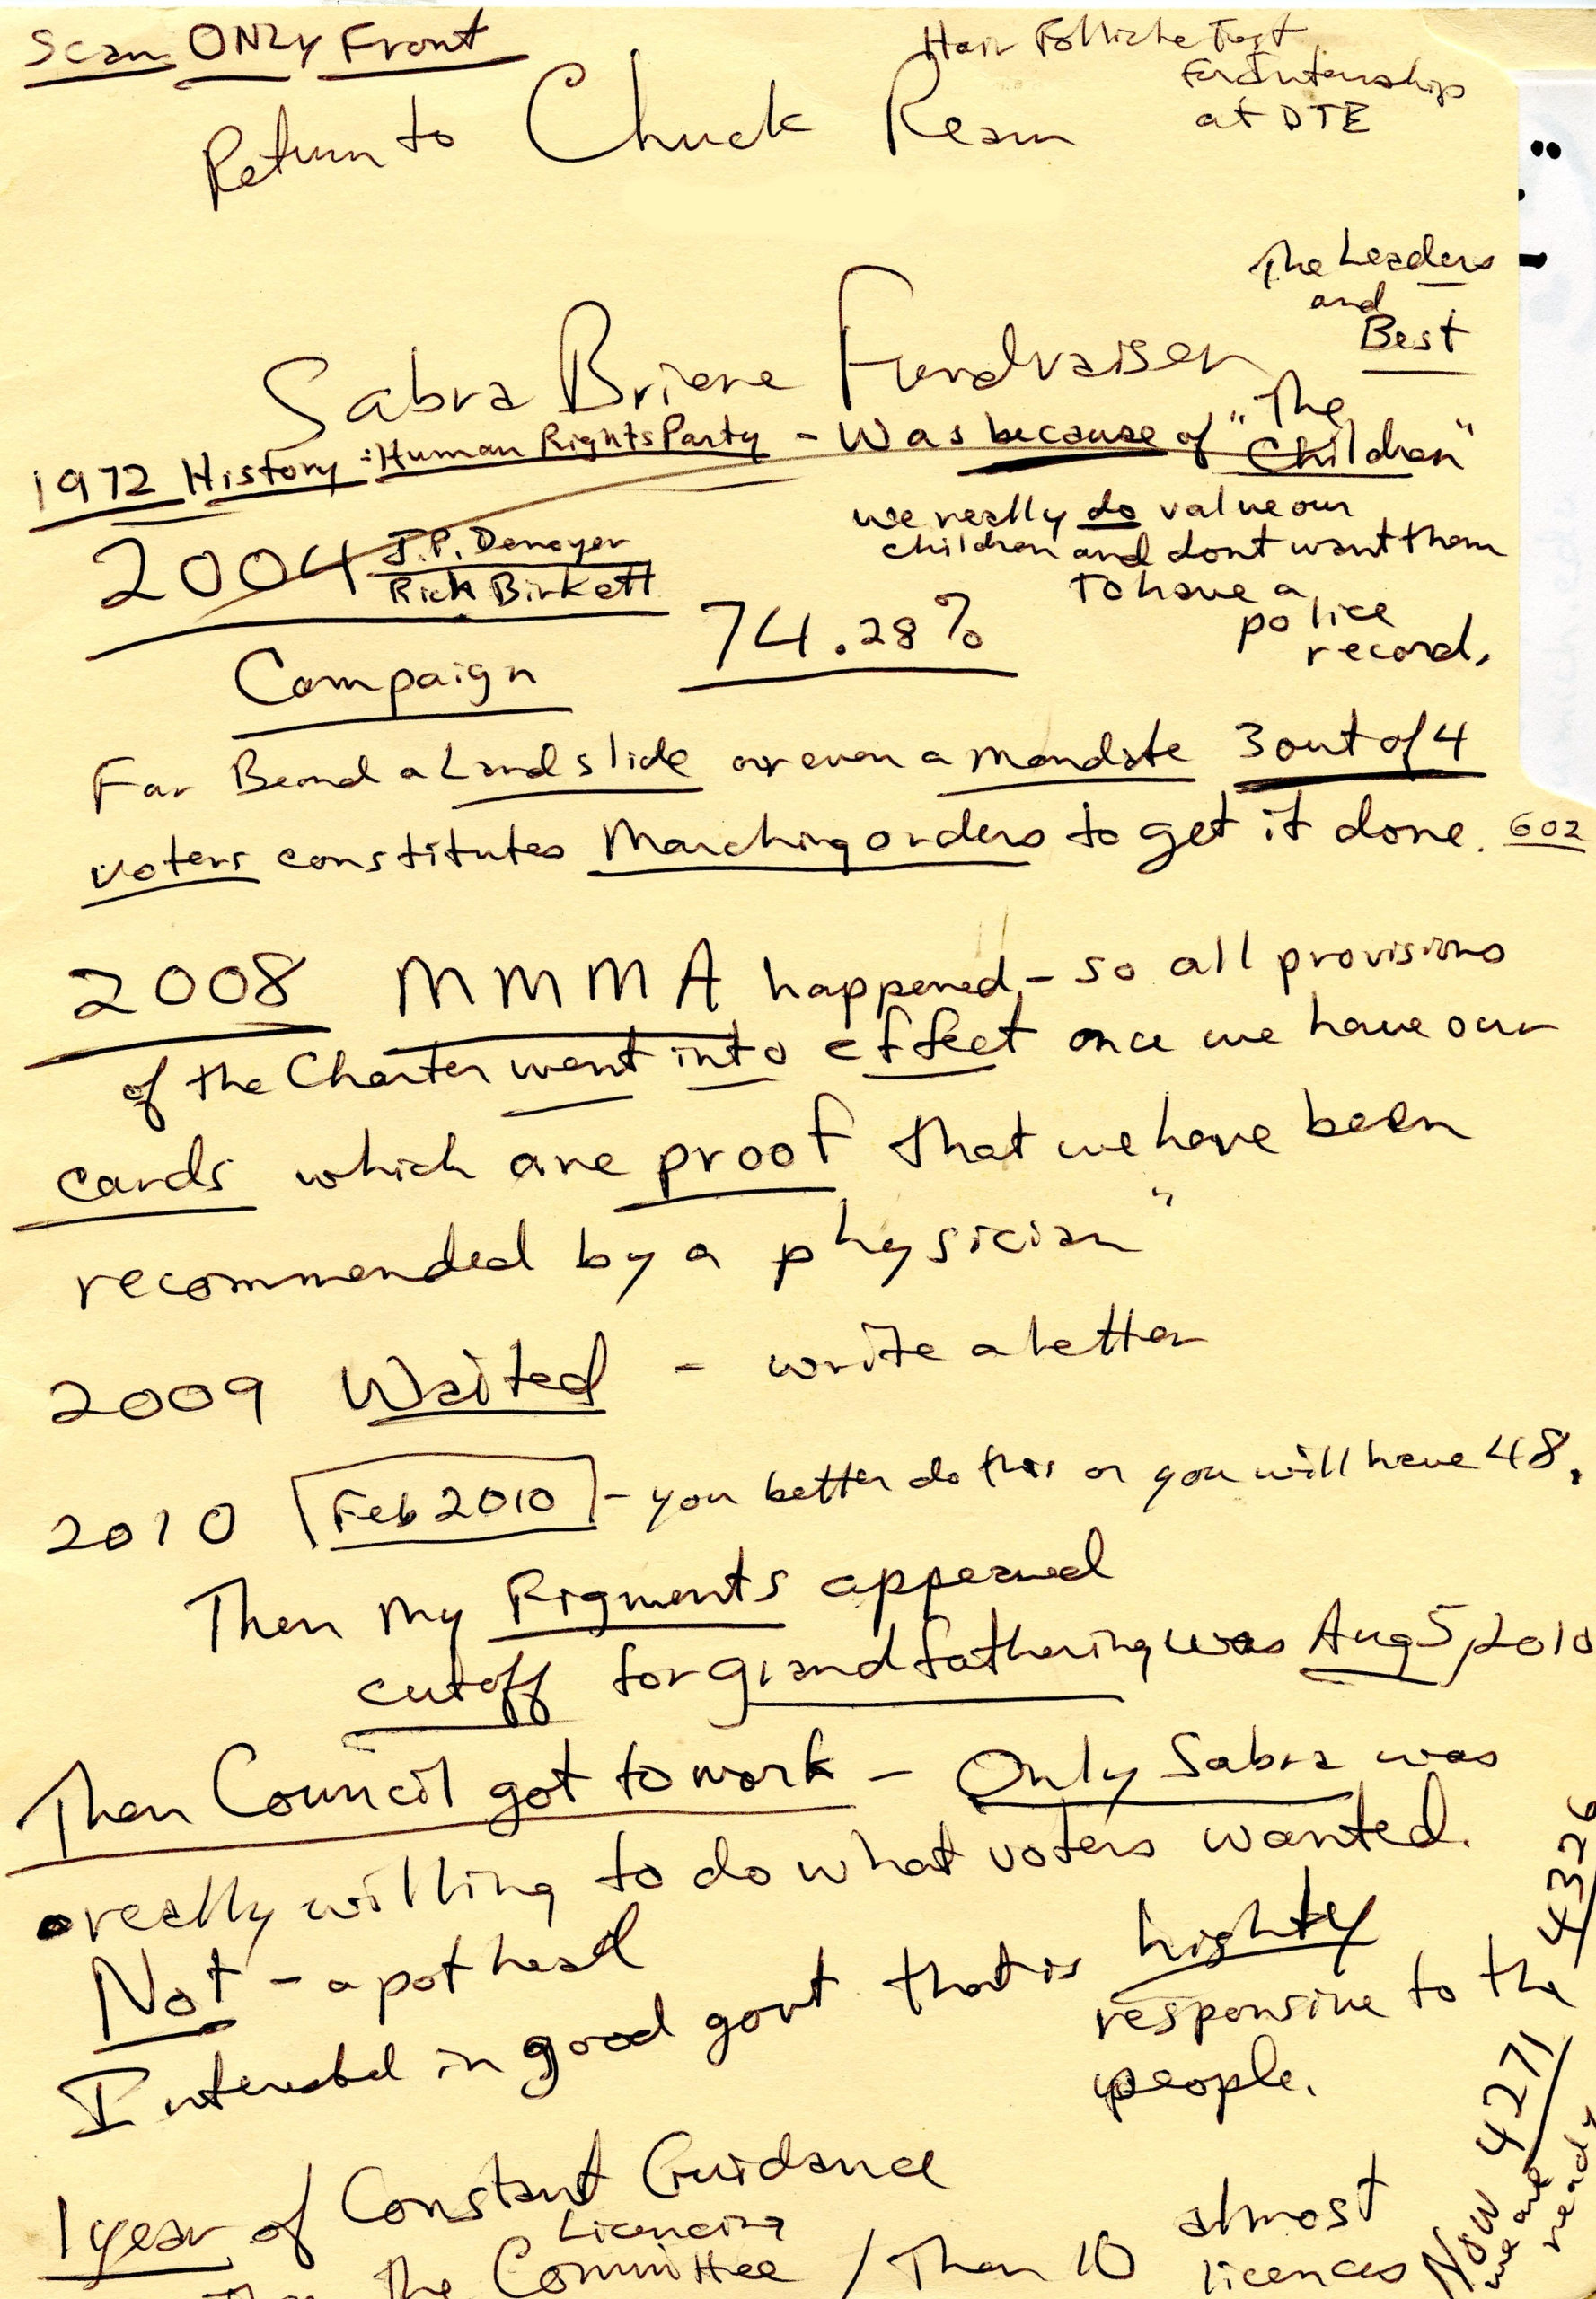 Scan ONLY Front
Hair Follicle Test
For Internship
at DTE
Return to Chuck Ream
The Leaders
and
Best
Sabra Briere Fundraiser
1972 History : Human Rights Party - Was because of "The
Children"
we really do value our
children and dont want them
to have a
police
record.
2004 J.P. Denoyer
Rick Birkett
74.28%
Campaign
Far Beond a Landslide or even a mandate 3 out of 4
voters constitutes Marching orders to get it done. 602
2008 MMMA happened - so all provisions
of the Charter went into effect once we have our
cards which are proof that we have been
recommended by a physician"
2009 Waited - write a letter
2010 Feb 2010 - you better do this or you will have 48.
Then my Pigments appeared
cutoff for grandfathering was Aug 5, 2010
Then Council got to work - Only Sabra was
really willing to do what voters wanted.
Not - a pothead
Interested in good govt that is highly
responsive to the
people.
4326
4271
Now we are ready
1 year of Constant Guidance
Licencing
the Committee / Then 10 almost
licences